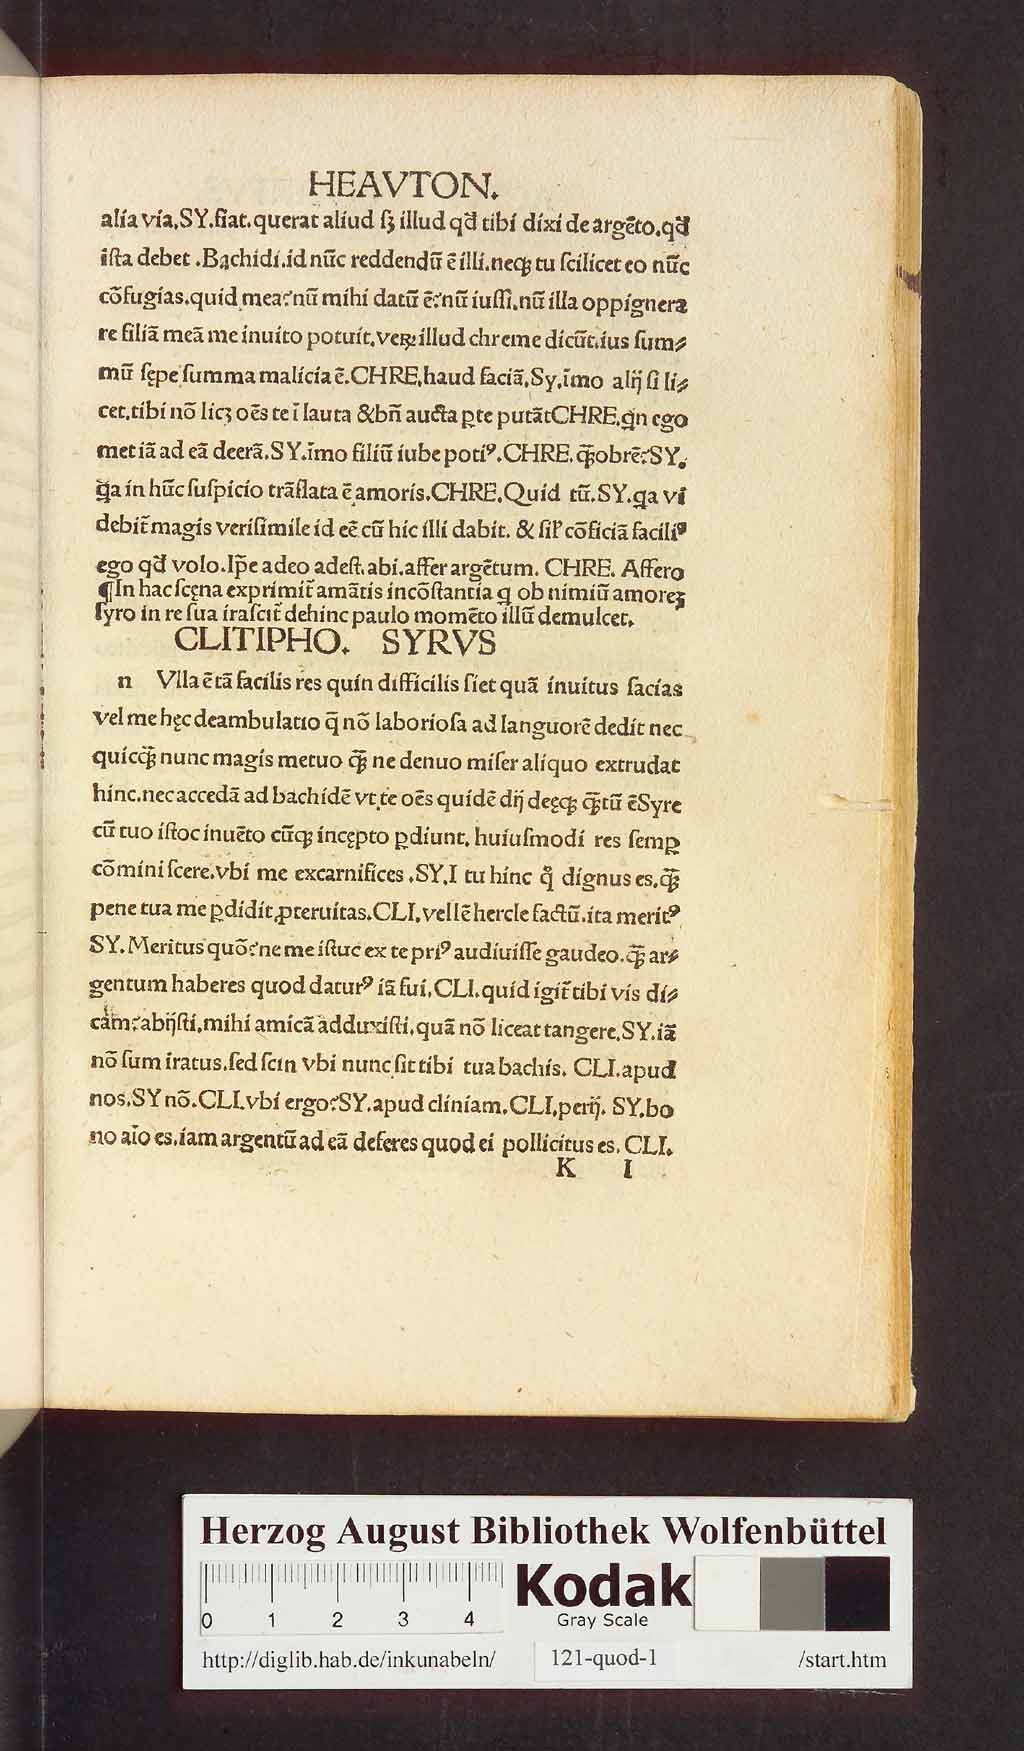 HEAVTON.
alia via.SY.fiat.querat aliud sꝫ illud qđ tibi dixi de argēto.qđ
ista debet .Bachidi.id nūc reddendū ē illi.neqꝫ tu scilicet eo nūc
cōfugias.quid mea?nū mihi datū ē?nū iussi.nū illa oppignera
re filiā meā me inuito potuit.veꝝ illud chreme dicūt.ius sum⸗
mū sępe summa malicia ē.CHRE.haud faciā.Sy.īmo alij si li⸗
cet.tibi nō licꝫ oēs te ī lauta &bn̄ aucta ꝑte putātCHRE.qn ego
met iā ad eā deerā.SY.īmo filiū iube potiꝰ.CHRE.q̄ꝫobrē?SY.
q̄a in hūc suspicio trāslata ē amoris.CHRE.Quid tū.SY.qa vi
debit̄ magis verisimile id eē cū hic illi dabit. & sił cōficiā faciliꝰ
ego qđ volo.Ip̄e adeo adest.abi.affer argētum. CHRE. Affero
¶In hac scęna exprimit̄ amātis incōstantia q ob nimiū amoreꝫ
syro in re sua irascit̄ dehinc paulo momēto illū demulcet.
CLITIPHO. SYRVS
n Vlla ē tā facilis res quin difficilis siet quā inuitus facias
vel me hęc deambulatio q̄ nō laboriosa ad languorē dedit nec
quicq̄ꝫ nunc magis metuo q̄ꝫ ne denuo miser aliquo extrudat
hinc.nec accedā ad bachidē vt te oēs quidē dij deęqꝫ q̄ꝫtū ēSyre
cū tuo istoc inuēto cūqꝫ incępto ꝑdiunt. huiusmodi res semꝑ
cōmini scere.vbi me excarnifices .SY.I tu hinc q̊ dignus es.q̄ꝫ
pene tua me ꝑdidit ꝓteruitas.CLI.vellē hercle factū.ita meritꝰ
SY.Meritus quō?ne me istuc ex te priꝰ audiuisse gaudeo.q̄ꝫ ar⸗
gentum haberes quod daturꝰ iā fui.CLI.quid igit̄ tibi vis di⸗
cam?abijsti.mihi amicā adduxisti.quā nō liceat tangere.SY.iā
nō sum iratus.sed scin vbi nunc sit tibi tua bachis. CLI.apud
nos.SY nō.CLI.vbi ergo?SY.apud cliniam.CLI.perij. SY.bo
no aīo es.iam argentū ad eā deferes quod ei pollicitus es. CLI.
K I
Herzog August Bibliothek Wolfenbüttel
0 1 2 3 4
Kodak
Gray Scale
http://diglib.hab.de/inkunabeln/ 121-quod-1 /start.htm